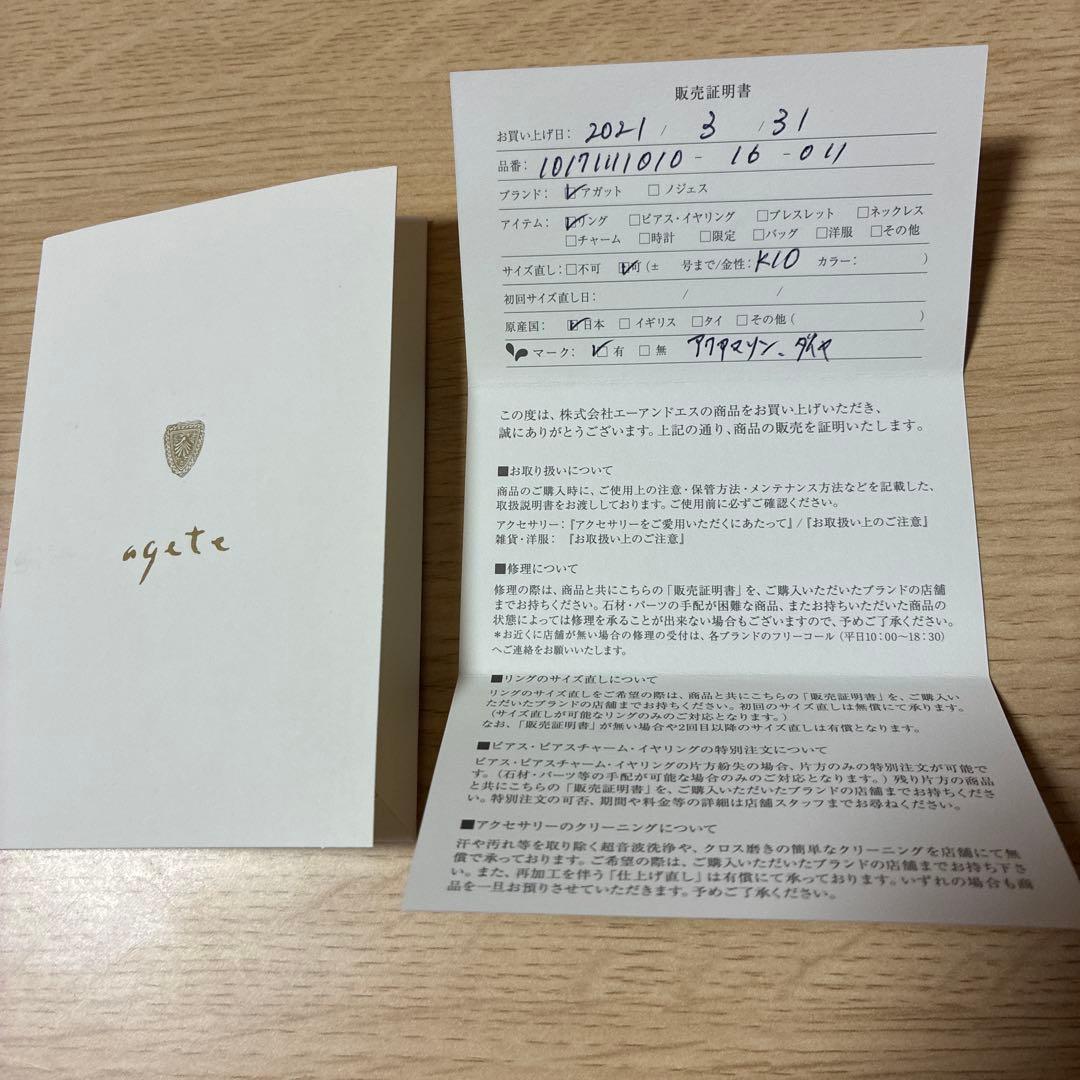 agete
販売証明書
お買い上げ日： 2021 / 3 / 31
品番： 1017111010 - 16 - 011
ブランド： ☑アガット □ノジェス
アイテム： ☑リング □ピアス・イヤリング □ブレスレット □ネックレス
□チャーム □時計 □限定 □バッグ □洋服 □その他
サイズ直し：□不可 ☑可（± 号まで/金性：K10 カラー： ）
初回サイズ直し日： / /
原産国： ☑日本 □イギリス □タイ □その他（ ）
マーク： ☑有 □無 アクアマリン、ダイヤ
この度は、株式会社エーアンドエスの商品をお買い上げいただき、
誠にありがとうございます。上記の通り、商品の販売を証明いたします。
■お取り扱いについて
商品のご購入時に、ご使用上の注意・保管方法・メンテナンス方法などを記載した、
取扱説明書をお渡ししております。ご使用前に必ずご確認ください。
アクセサリー：『アクセサリーをご愛用いただくにあたって』/『お取扱い上のご注意』
雑貨・洋服： 『お取扱い上のご注意』
■修理について
修理の際は、商品と共にこちらの「販売証明書」を、ご購入いただいたブランドの店舗
までお持ちください。石材・パーツの手配が困難な商品、またお持ちいただいた商品の
状態によっては修理を承ることが出来ない場合もございますので、予めご了承ください。
＊お近くに店舗が無い場合の修理の受付は、各ブランドのフリーコール（平日10：00〜18：30）
へご連絡をお願いいたします。
■リングのサイズ直しについて
リングのサイズ直しをご希望の際は、商品と共にこちらの「販売証明書」を、ご購入い
ただいたブランドの店舗までお持ちください。初回のサイズ直しは無償にて承ります。
（サイズ直しが可能なリングのみのご対応となります。）
なお、「販売証明書」が無い場合や2回目以降のサイズ直しは有償となります。
■ピアス・ピアスチャーム・イヤリングの特別注文について
ピアス・ピアスチャーム・イヤリングの片方紛失の場合、片方のみの特別注文が可能で
す。（石材・パーツ等の手配が可能な場合のみのご対応となります。）残り片方の商品
と共にこちらの「販売証明書」を、ご購入いただいたブランドの店舗までお持ちくださ
い。特別注文の可否、期間や料金等の詳細は店舗スタッフまでお尋ねください。
■アクセサリーのクリーニングについて
汗や汚れ等を取り除く超音波洗浄や、クロス磨きの簡単なクリーニングを店舗にて無
償で承っております。ご希望の際は、ご購入いただいたブランドの店舗までお持ち下さ
い。また、再加工を伴う「仕上げ直し」は有償にて承っております。いずれの場合も商
品を一旦お預りさせていただきます。予めご了承ください。